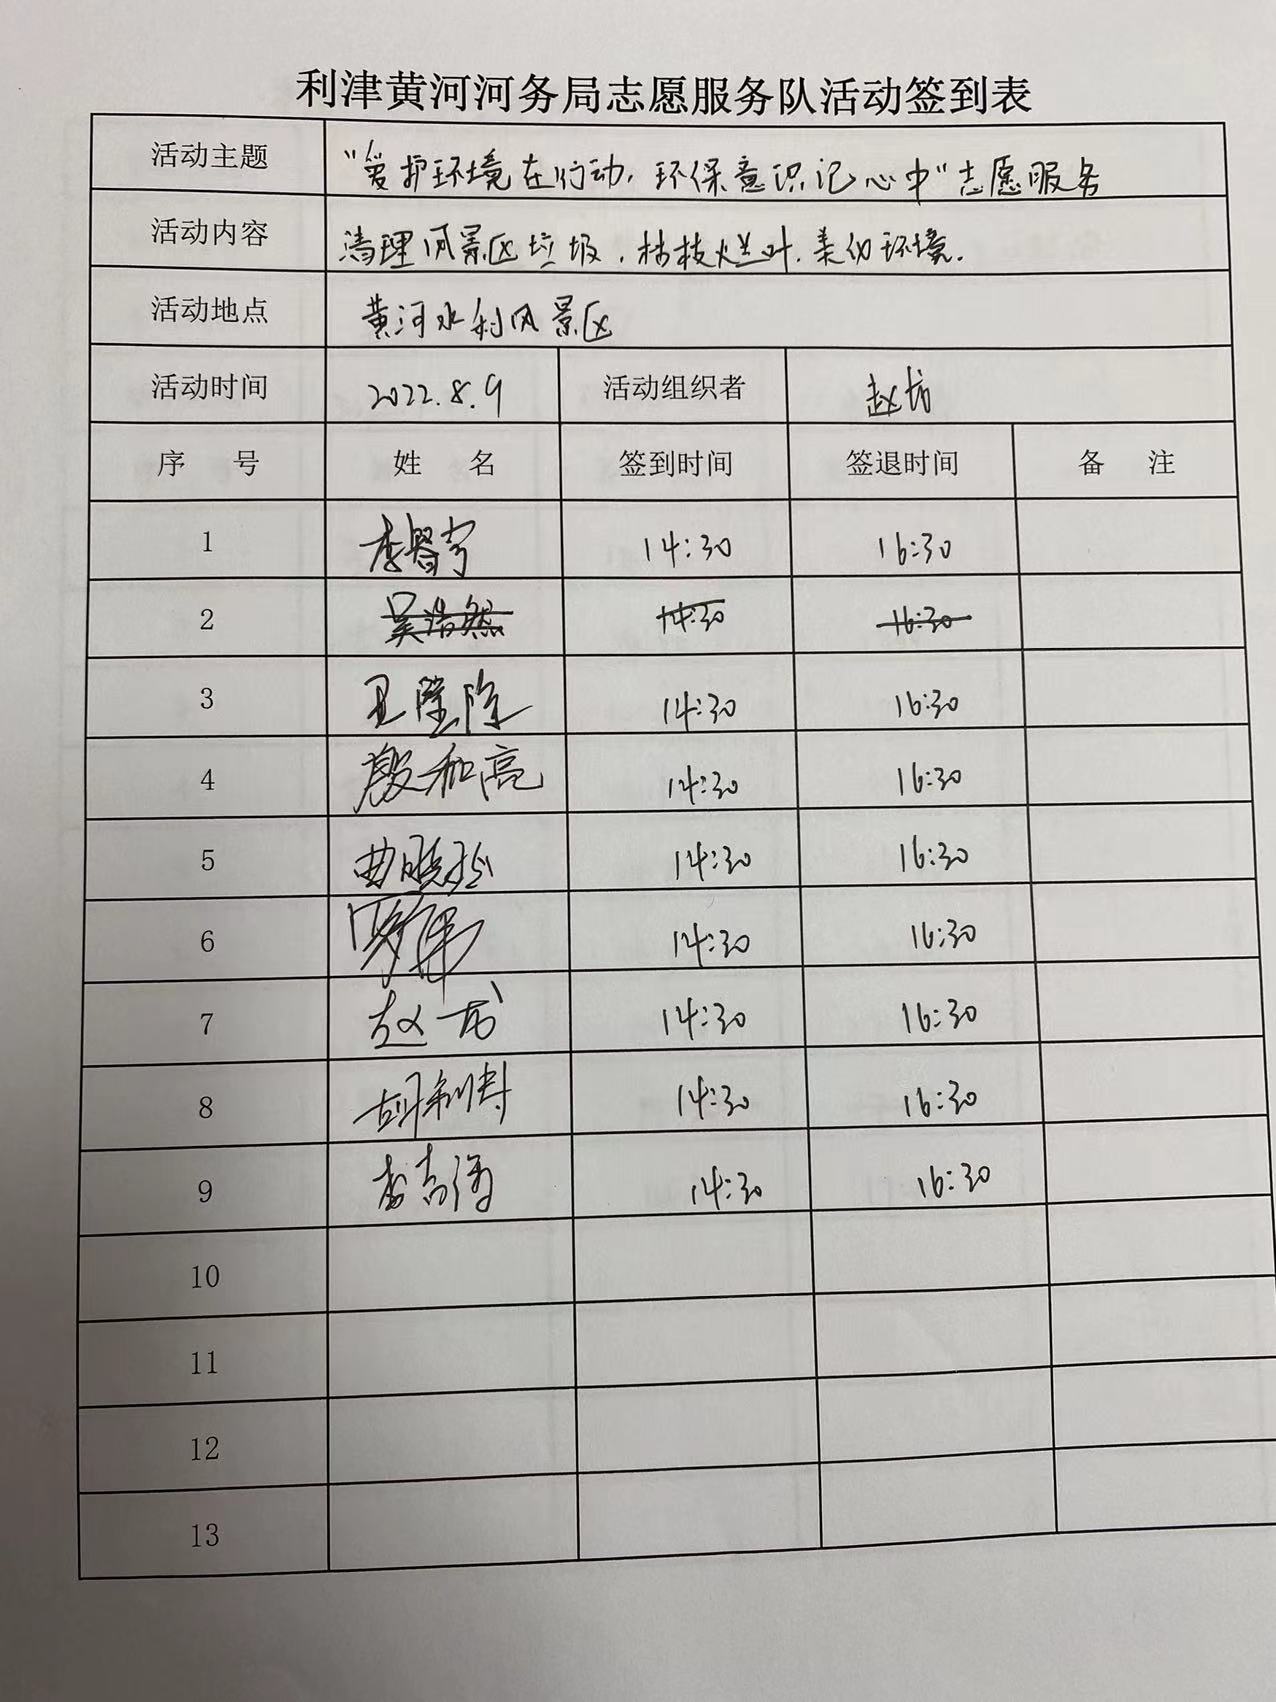 利津黄河河务局志愿服务队活动签到表
活动主题 "爱护环境在行动，环保意识记心中"志愿服务
活动内容 清理风景区垃圾，枯枝烂叶，美化环境.
活动地点 黄河水利风景区
活动时间 2022.8.9 活动组织者 赵
序 号 姓 名 签到时间 签退时间 备 注
1 李智宇 14:30 16:30
2 吴浩然 14:30 16:30
3 14:30 16:30
4 殷和亮 14:30 16:30
5 曲晓 14:30 16:30
6 罗伟 14:30 16:30
7 赵 14:30 16:30
8 胡利涛 14:30 16:30
9 李 14:30 16:30
10
11
12
13